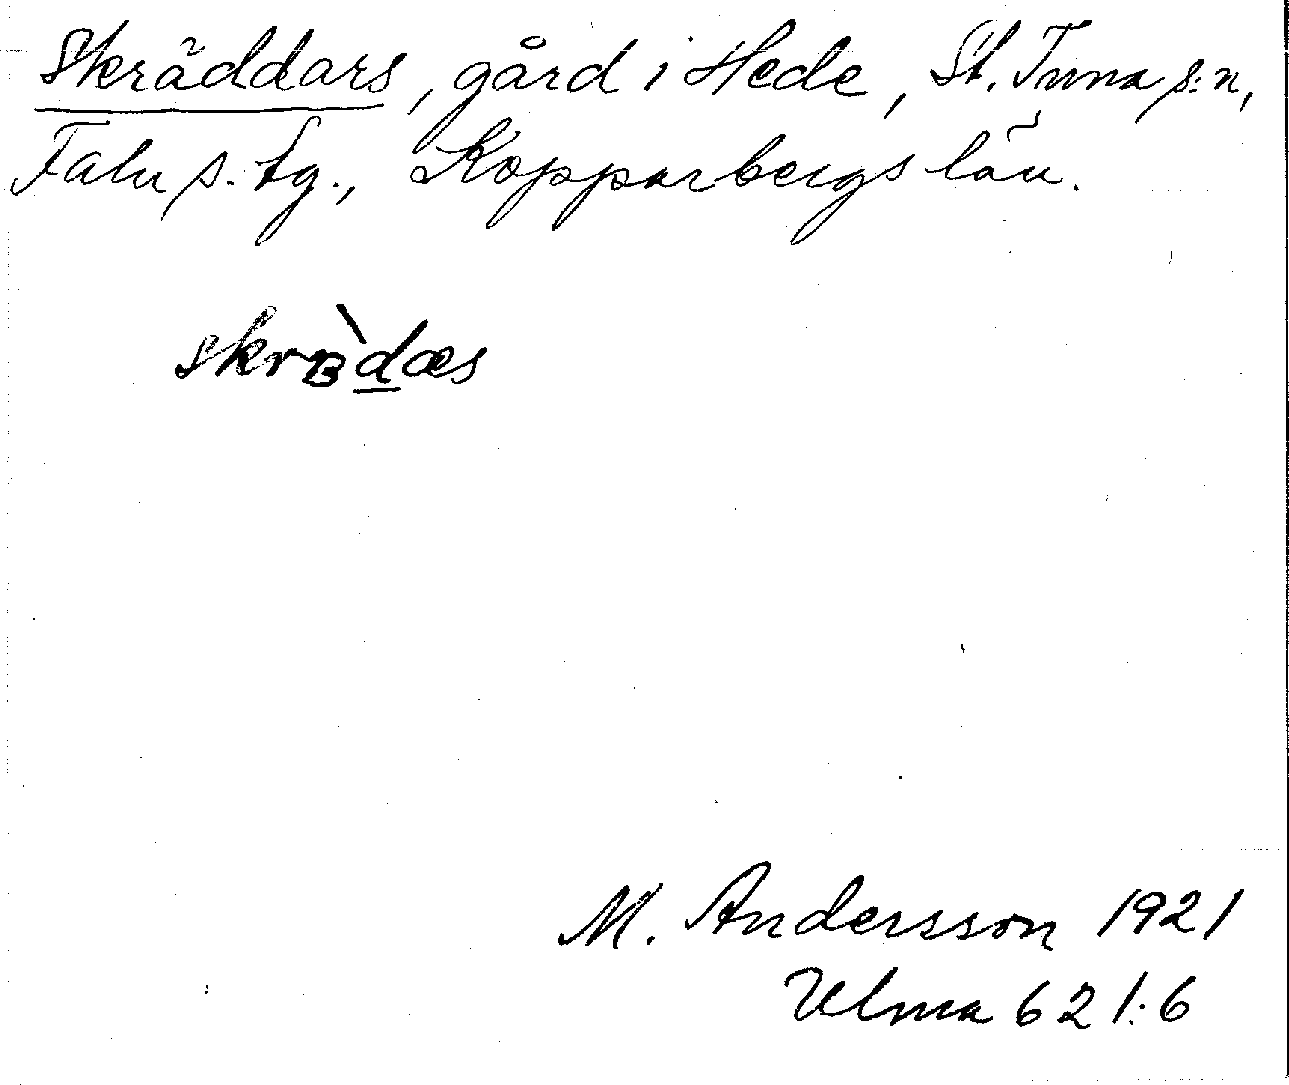 Skräddars, gård i Hede, St. Tuna s:n,
Falu s. tg., Kopparbergs län.
skrɞ̀d̲æs
M. Andersson 1921
Ulma 621:6